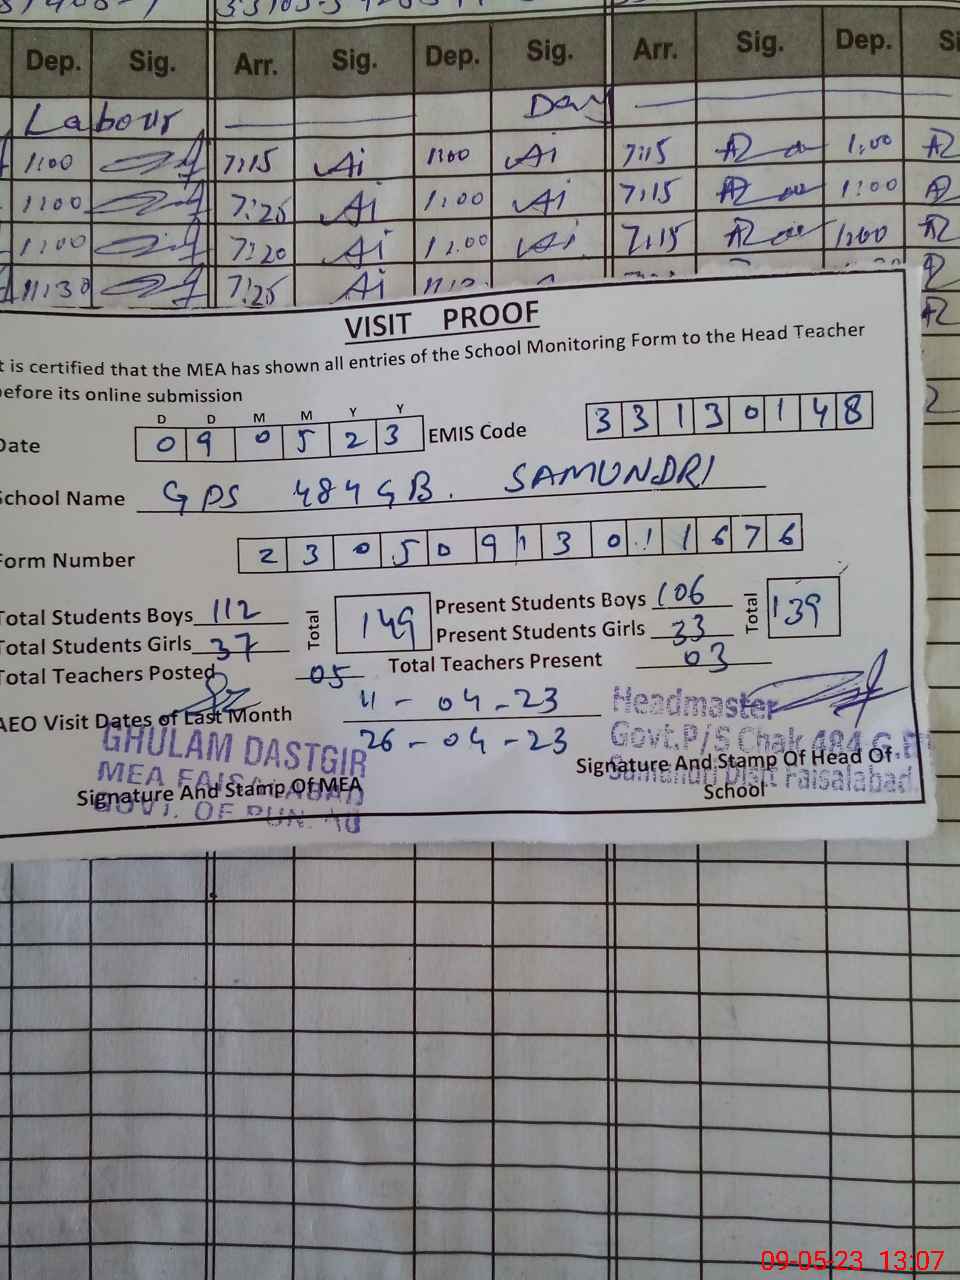 Dep. Sig. Arr. Sig. Dep. Sig. Arr. Sig. Dep.
Labour Day
1:00 7:15 Ai 1:00 Ai 7:15 1:00
1:00 7:25 Ai 1:00 Ai 7:15 1:00
1:00 7:20 Ai 1:00 Ai 7:15 1:00
11:30 7:25 Ai
VISIT PROOF
t is certified that the MEA has shown all entries of the School Monitoring Form to the Head Teacher
before its online submission
D D M M Y Y
Date 0 9 0 5 2 3 EMIS Code 3 3 1 3 0 1 4 8
School Name GPS 484 GB. SAMUNDRI
Form Number 2 3 0 5 0 9 1 3 0 1 1 6 7 6
Total Students Boys 112 Total 149 Present Students Boys 106 Total 139
Total Students Girls 37 Present Students Girls 33
Total Teachers Posted 05 Total Teachers Present 03
AEO Visit Dates of Last Month 11-04-23
26-04-23
GHULAM DASTGIR
MEA FAISALABAD
GOVT. OF PUNJAB
Signature And Stamp Of MEA
Headmaster
Govt.P/S Chak 484 G.B
Samundri Distt Faisalabad.
Signature And Stamp Of Head Of
School
09-05-23 13:07